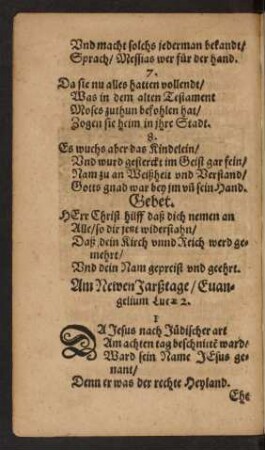 Vnd macht solchs jederman bekandt/
Sprach/ Messias wer für der hand.
7.
Da sie nu alles hatten vollendt/
Was in dem alten Testament
Moses zuthun befohlen hat/
Zogen sie heim in jhre Stadt.
8.
Es wuchs aber das Kindelein/
Vnd wurd gesterckt im Geist gar fein/
Nam zu an Weißheit vnd Verstand/
Gotts gnad war bey jm vñ sein Hand.
Gebet.
HErr Christ hilff daß dich nemen an
Alle/ so dir jetzt widerstahn/
Daß dein Kirch vnnd Reich werd ge-
mehrt/
Vnd dein Nam gepreist vnd geehrt.
Am Newen Jarßtage/ Euan-
gelium Lucæ 2.
1
DA Jesus nach Jüdischer art
Am achten tag beschnittē ward/
Ward sein Name JEsus ge-
nant/
Denn er was der rechte Heyland.
Ehe